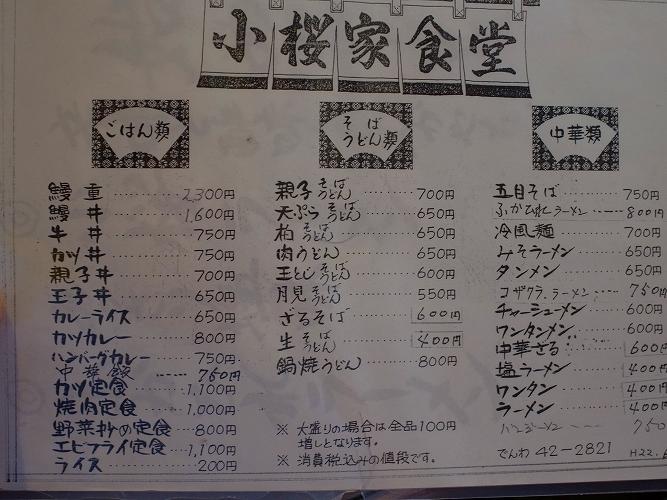 小桜家食堂
ごはん類
鰻重 2,300円
鰻丼 1,600円
牛丼 750円
カツ丼 750円
親子丼 700円
玉子丼 650円
カレーライス 650円
カツカレー 800円
ハンバーグカレー 750円
中華飯 760円
カツ定食 1,100円
焼肉定食 1,000円
野菜炒め定食 800円
エビフライ定食 1,100円
ライス 200円
そば
うどん類
親子そばうどん 700円
天ぷらそばうどん 650円
柏そばうどん 650円
肉うどん 650円
玉とじそばうどん 600円
月見そばうどん 550円
ざるそば 600円
生そばうどん 400円
鍋焼うどん 800円
※ 大盛りの場合は全品100円
増しとなります。
※ 消費税込みの値段です。
中華類
五目そば 750円
ふかひれラーメン 800円
冷風麺 700円
みそラーメン 650円
タンメン 650円
コザクララーメン 750円
チャーシューメン 600円
ワンタンメン 600円
中華ざる 600円
塩ラーメン 400円
ワンタン 400円
ラーメン 400円
750
でんわ 42-2821
H22.